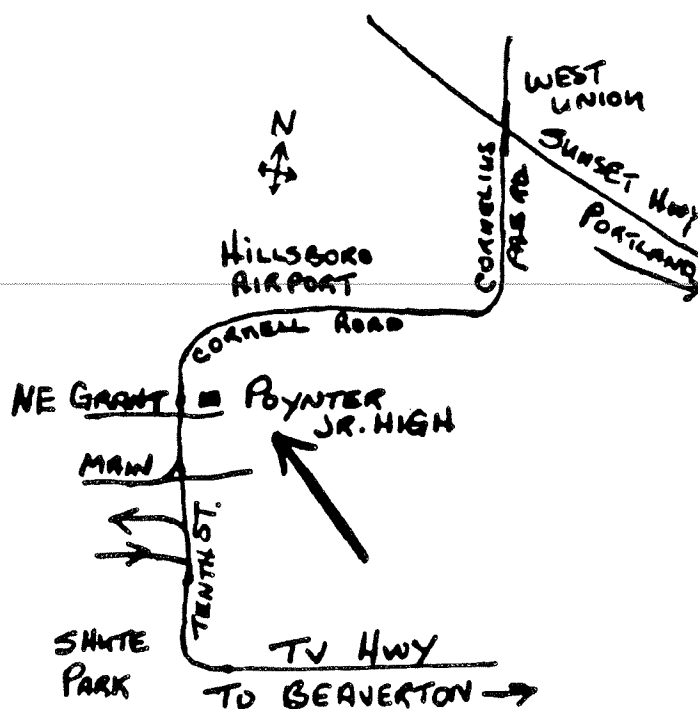 WEST
UNION
N
SUNSET HWY
CORNELIUS
PASS RD.
PORTLAND
HILLSBORO
AIRPORT
CORNELL ROAD
NE GRANT
POYNTER
JR. HIGH
MAIN
TENTH ST.
SHUTE
PARK
TV HWY
TO BEAVERTON